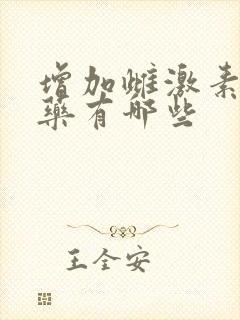 增加雌激素
藥有哪些
王全安